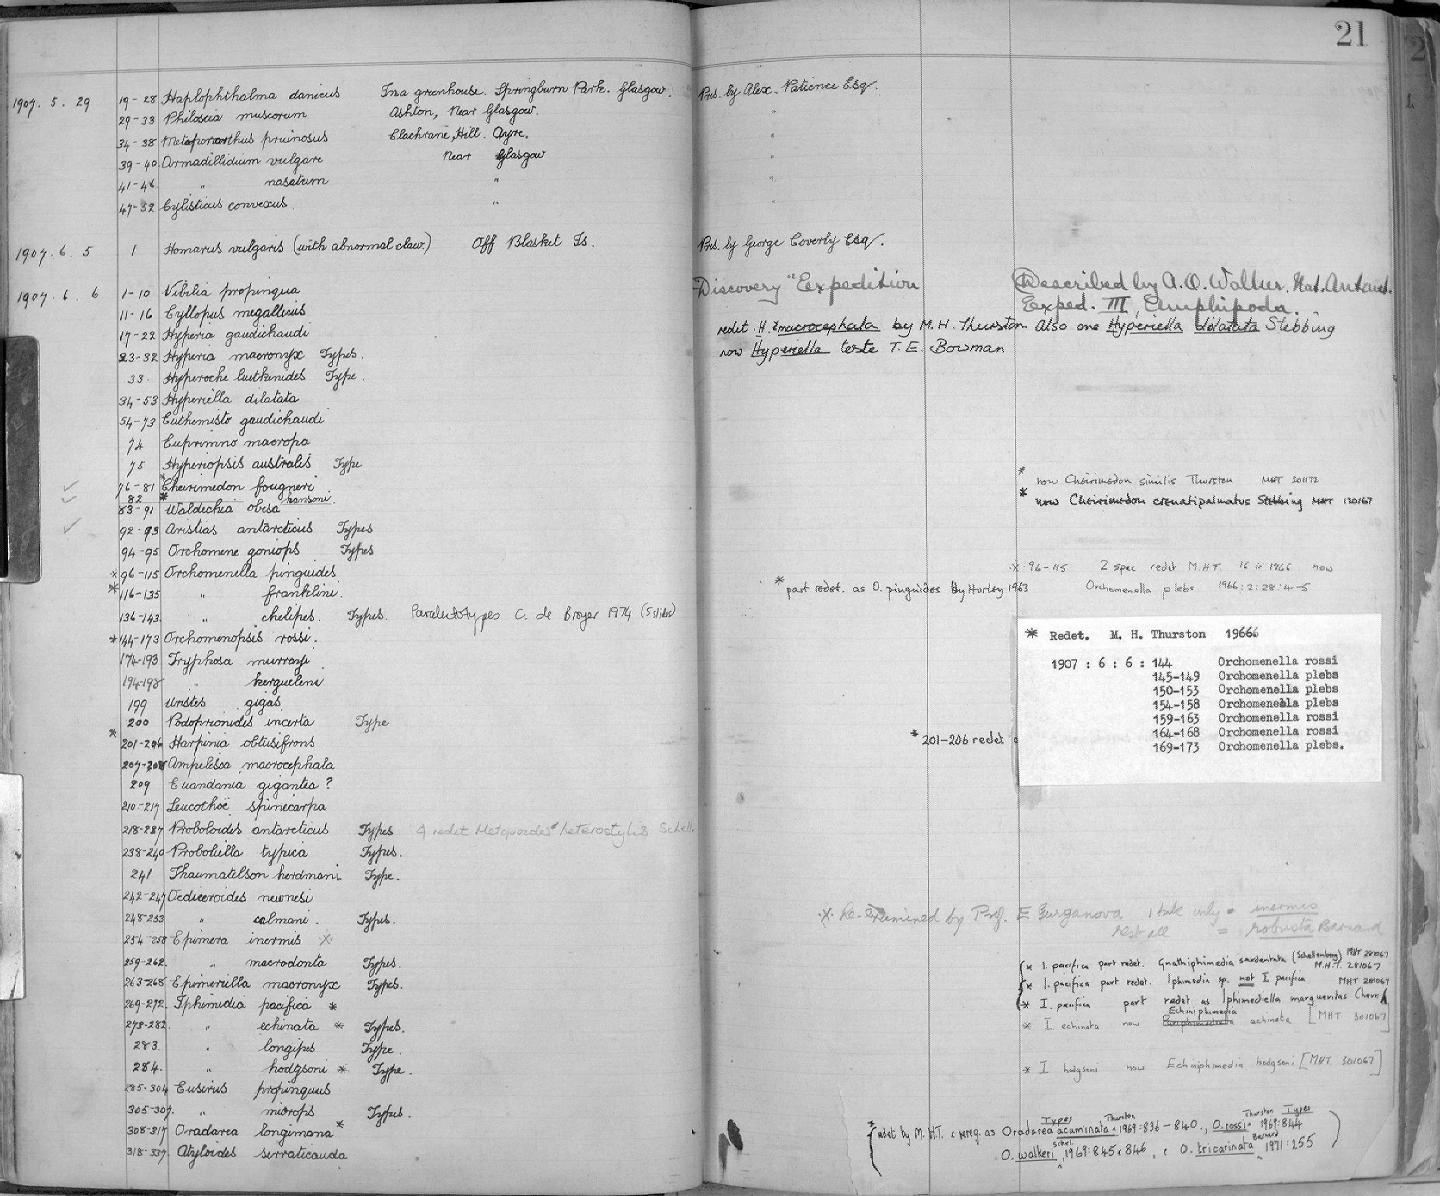 21
1907. 5. 29 19-28 Haplophthalma danicus In a greenhouse. Springburn Park. Glasgow. Pres. by Alex. Patience Esq.
29-33 Philoscia muscorum Ashton, Near Glasgow. "
34-38 Metoponorthus pruinosus Hill. Ayre. "
39-40 Armadillidium vulgare Near Glasgow "
41-46 " nasatum " "
47-52 Cylisticus convexus "
1907. 6. 5 1 Homarus vulgaris (with abnormal claw.) Off Blasket Is. Pres. by George Coverly Esq.
1907. 6. 6 1-10 Vibilia propinqua "Discovery" Expedition Described by A. O. Walker. Nat. Antarct. Exped. III, Amphipoda.
11-16 Cyllopus magellicus
17-22 Hyperia gaudichaudi redet. H. macrocephala by M. H. Thurston. Also one Hyperiella dilatata Stebbing
23-32 Hyperia macronyx Types. now Hyperiella teste T. E. Bowman
33. Hyperoche luetkenides Type.
34-53 Hyperiella dilatata
54-73 Euthemisto gaudichaudi
74 Euprimno macropa
75 Hyperiopsis australis Type
76-81 * Cheirimedon fougneri * now Cheirimedon similis Thurston MHT 201172
82 * hansoni. * now Cheirimedon crenatipalmatus Stebbing MHT 130167
83-91 Waldeckia obesa
92-93 Aristias antarcticus Types
94-95 Orchomene goniops Types
* 96-115 Orchomenella pinguides * 96-115 2 spec redet M.H.T. 1966 now
* 116-135 " franklini. * part redet. as O. pinguides by Hurley 1963 Orchomenella plebs 1966:2:28:4-5
136-143 " chelipes. Types. Paralectotypes C. de Broyer 1974 (5 slides)
* 144-173 Orchomenopsis rossi.
* Redet. M. H. Thurston 19666
1907 : 6 : 6 : 144 Orchomenella rossi
145-149 Orchomenella plebs
150-153 Orchomenella plebs
154-158 Orchomenella plebs
159-163 Orchomenella rossi
164-168 Orchomenella rossi
169-173 Orchomenella plebs.
174-193 Tryphosa murrayi
194-198 " kergueleni
199 Uristes gigas
200 Podoprionides incerta Type
* 201-206 Harpinia obtusifrons * 201-206 redet
207-208 Ampelisca macrocephala
209 Euandania gigantea ?
210-217 Leucothoë spinicarpa
218-237 Proboloides antarcticus Types 9 redet Metopoides heterostylis Schell.
238-240 Probolella typica Types.
241 Thaumatelson herdmani Type.
242-247 Oediceroides newnesi
248-253 " calmani. Types.
254-258 Epimera inermis * * Re-examined by Prof. E Gurganova 1 tube only = inermis
rest all = robusta Barnard
259-262 " macrodonta Types.
263-268 Epimeriella macronyx Types.
269-272 Iphimedia pacifica *
* I. pacifica part redet. Gnathiphimedia mandentata (Schellenberg) MHT 281067
* I. pacifica part redet. Iphimedia sp. not I pacifica MHT 281067
* I. pacifica part redet as Iphimediella margueritei Chevr.
273-282 " echinata * Types. * I. echinata now Echiniphimedia echinata [MHT 301067]
283. " longipes Type.
284. " hodgsoni * Type. * I hodgsoni now Echiniphimedia hodgsoni [MHT. 301067]
285-304 Eusirus propinquus
305-307. " microps Types.
308-317 Oradarea longimana * * redet by M.H.T. & rereg. as Oradarea acuminata Thurston Types 1969:836-840., O. rossi Thurston Types 1969:844
318-337 Atyloides serraticauda O. walkeri Schel. 1969:845 & 846, & O. tricarinata Barnard 1971:255